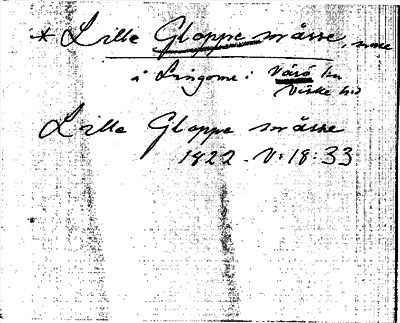 * Lille Gloppe måsse, mosse
å Lingome: Värö sn
Viske hd
Lille Gloppe måsse
1822 - V: 18: 33